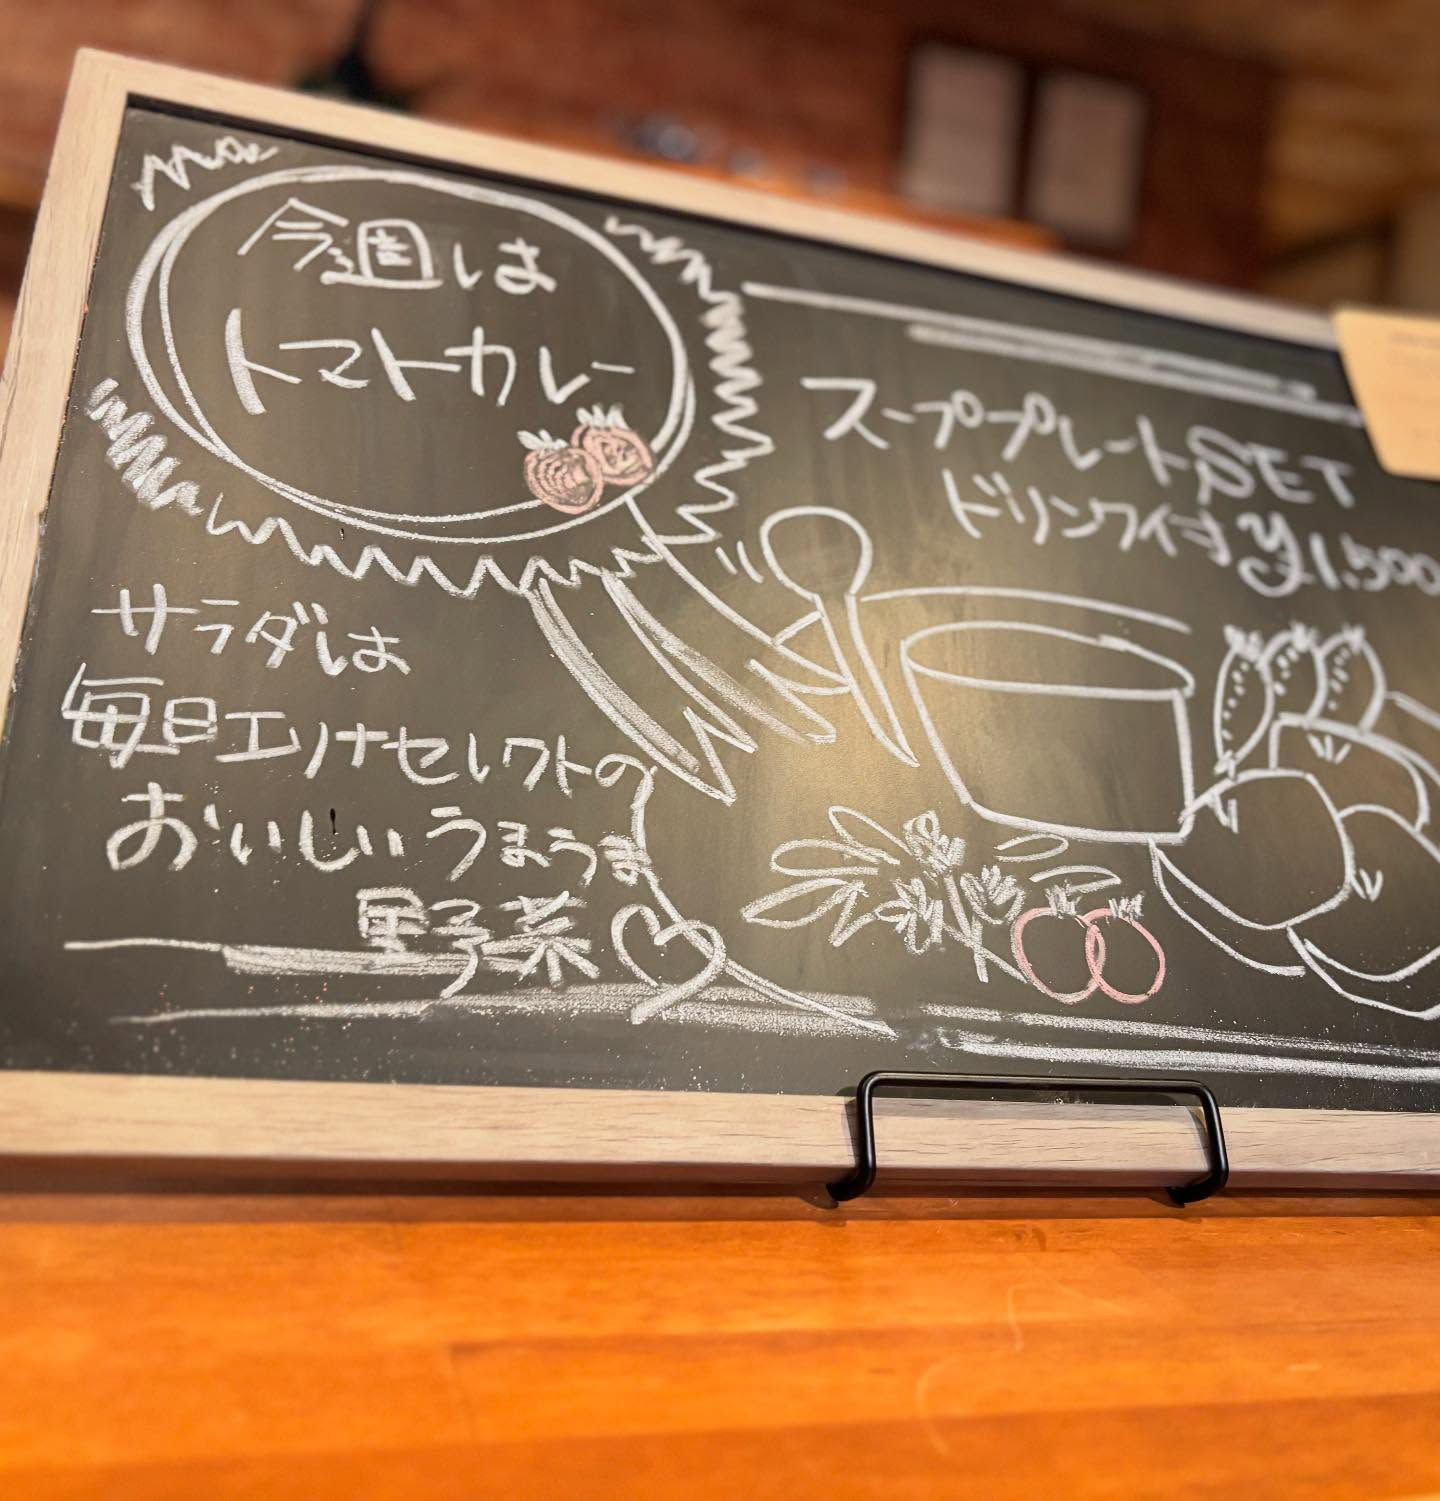 今週は
トマトカレー
スーププレートSET
ドリンク付 ¥1.500
サラダは
毎日エノナセレクトの
おいしいうまうま
野菜